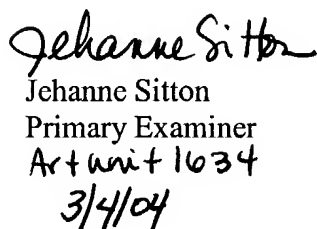 Jehanne Sitton
Jehanne Sitton
Primary Examiner
Art unit 1634
3/4/04